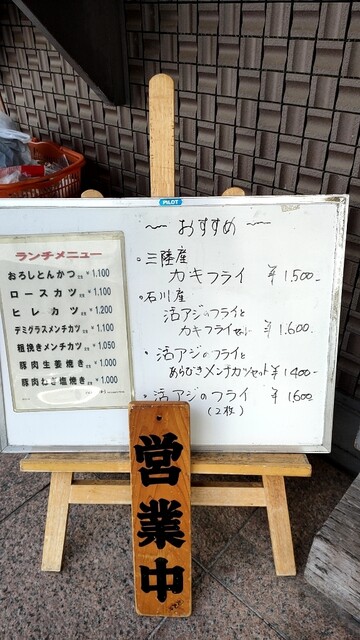 PILOT
ランチメニュー
おろしとんかつ ¥1,100
ロースカツ ¥1,100
ヒレカツ ¥1,200
デミグラスメンチカツ ¥1,100
粗挽きメンチカツ ¥1,050
豚肉生姜焼き ¥1,000
豚肉むぎ塩焼き ¥1,000
〜おすすめ〜
・三陸産
カキフライ ¥1,500-
・石川産
活アジのフライと
カキフライセット ¥1,600-
・活アジのフライと
あらびきメンチカツセット ¥1400-
・活アジのフライ ¥1600
(2枚)
営業中